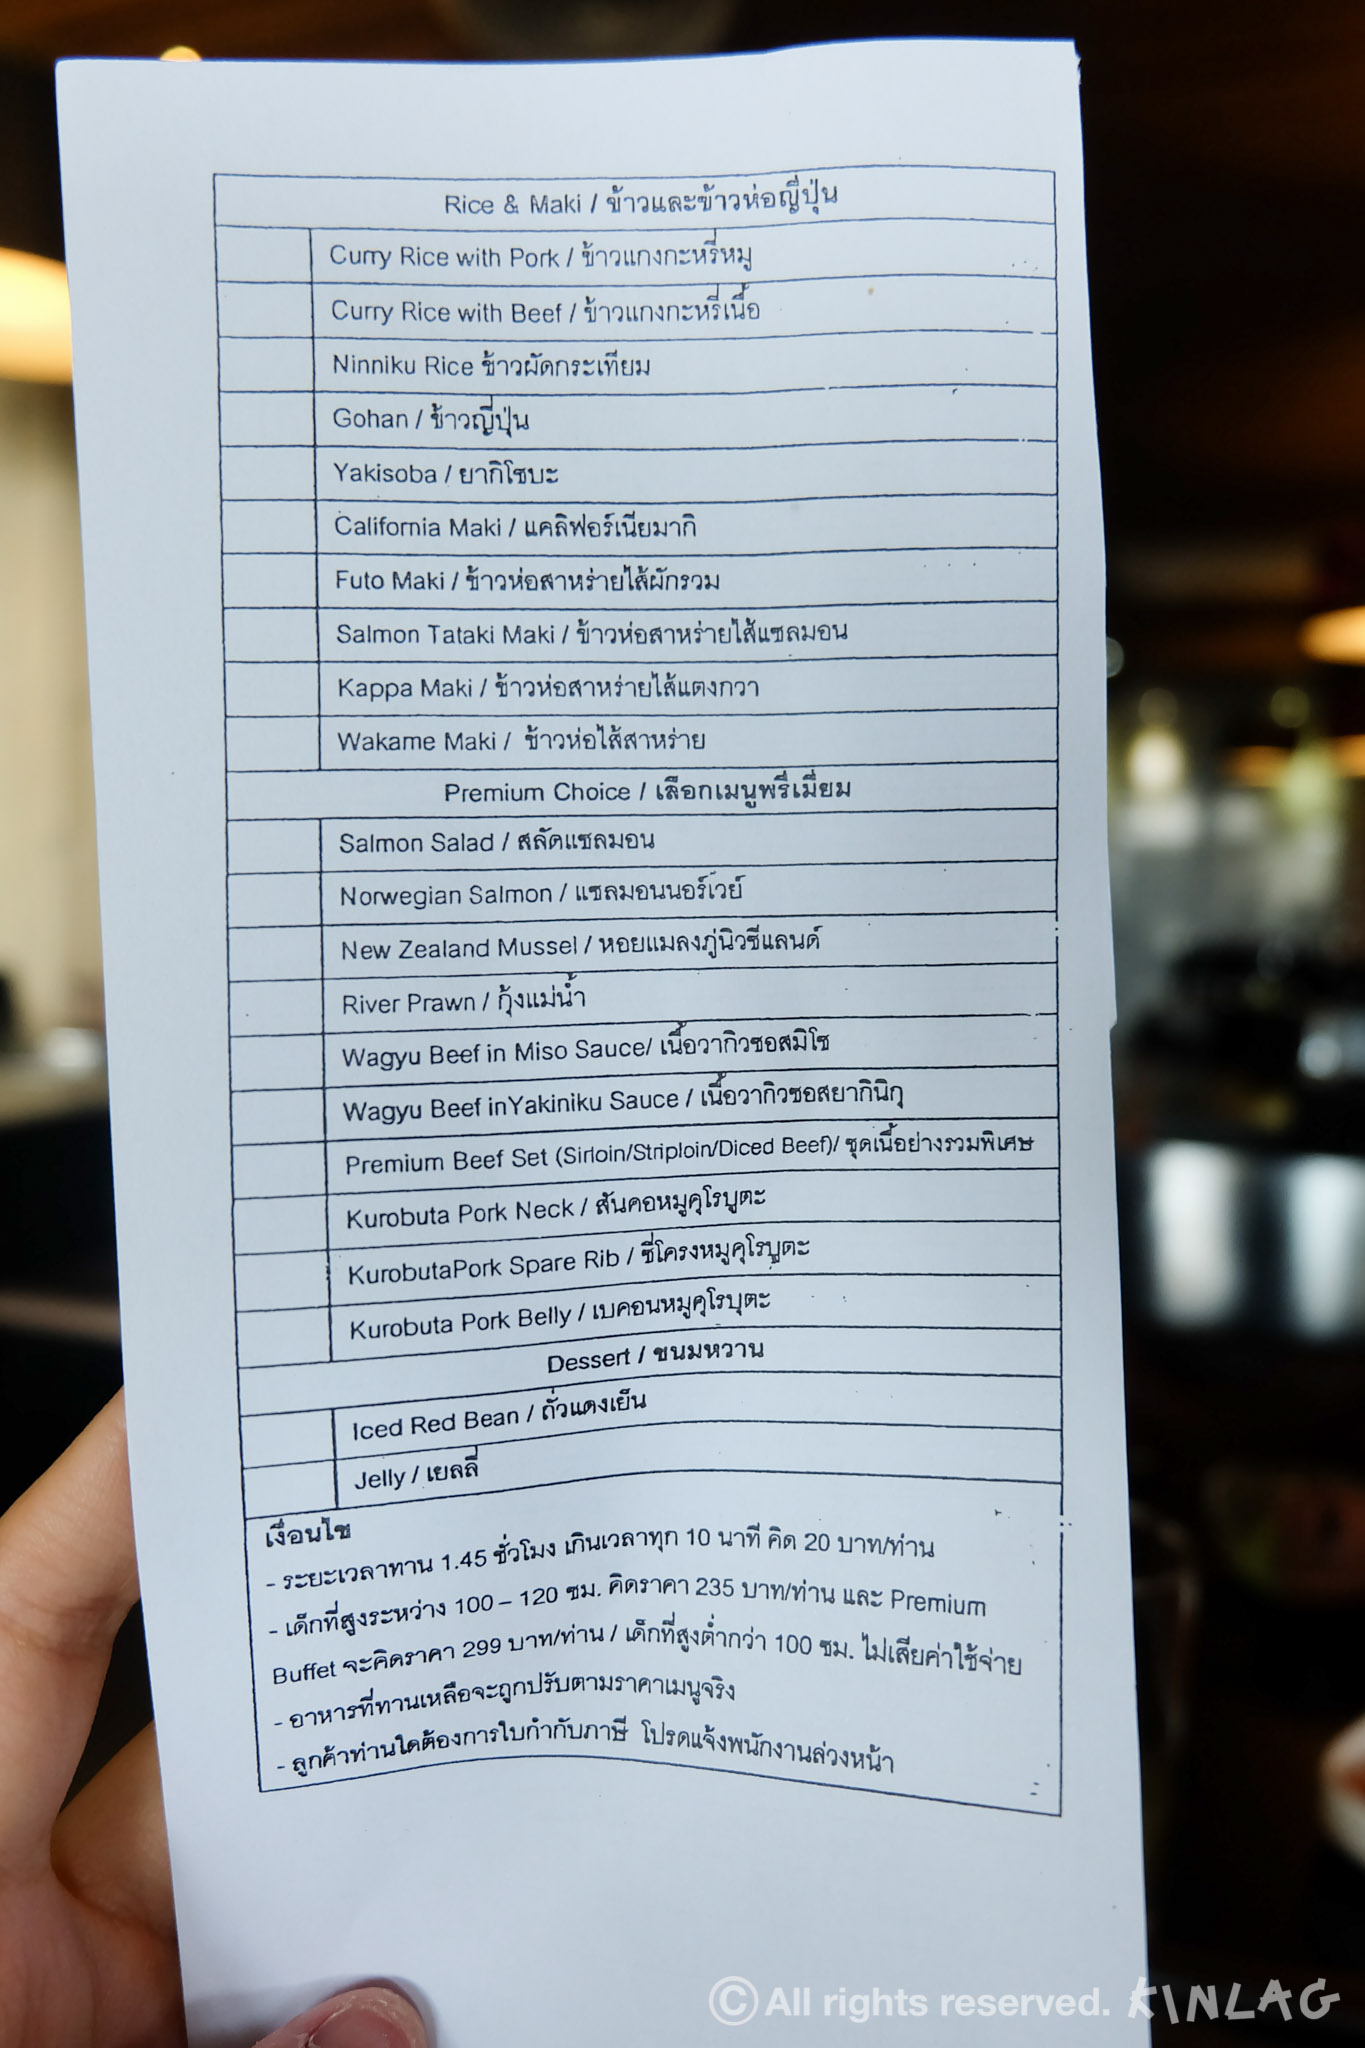 Rice & Maki / ข้าวและข้าวห่อญี่ปุ่น
Curry Rice with Pork / ข้าวแกงกะหรี่หมู
Curry Rice with Beef / ข้าวแกงกะหรี่เนื้อ
Ninniku Rice ข้าวผัดกระเทียม
Gohan / ข้าวญี่ปุ่น
Yakisoba / ยากิโซบะ
California Maki / แคลิฟอร์เนียมากิ
Futo Maki / ข้าวห่อสาหร่ายไส้ผักรวม
Salmon Tataki Maki / ข้าวห่อสาหร่ายไส้แซลมอน
Kappa Maki / ข้าวห่อสาหร่ายไส้แตงกวา
Wakame Maki / ข้าวห่อไส้สาหร่าย
Premium Choice / เลือกเมนูพรีเมี่ยม
Salmon Salad / สลัดแซลมอน
Norwegian Salmon / แซลมอนนอร์เวย์
New Zealand Mussel / หอยแมลงภู่นิวซีแลนด์
River Prawn / กุ้งแม่น้ำ
Wagyu Beef in Miso Sauce/ เนื้อวากิวซอสมิโซ
Wagyu Beef inYakiniku Sauce / เนื้อวากิวซอสยากินิกุ
Premium Beef Set (Sirloin/Striploin/Diced Beef)/ ชุดเนื้อย่างรวมพิเศษ
Kurobuta Pork Neck / สันคอหมูคุโรบูตะ
KurobutaPork Spare Rib / ซี่โครงหมูคุโรบูตะ
Kurobuta Pork Belly / เบคอนหมูคุโรบุตะ
Dessert / ขนมหวาน
Iced Red Bean / ถั่วแดงเย็น
Jelly / เยลลี่
เงื่อนไข
- ระยะเวลาทาน 1.45 ชั่วโมง เกินเวลาทุก 10 นาที คิด 20 บาท/ท่าน
- เด็กที่สูงระหว่าง 100 – 120 ซม. คิดราคา 235 บาท/ท่าน และ Premium
Buffet จะคิดราคา 299 บาท/ท่าน / เด็กที่สูงต่ำกว่า 100 ซม. ไม่เสียค่าใช้จ่าย
- อาหารที่ทานเหลือจะถูกปรับตามราคาเมนูจริง
- ลูกค้าท่านใดต้องการใบกำกับภาษี โปรดแจ้งพนักงานล่วงหน้า
© All rights reserved. KINLAG